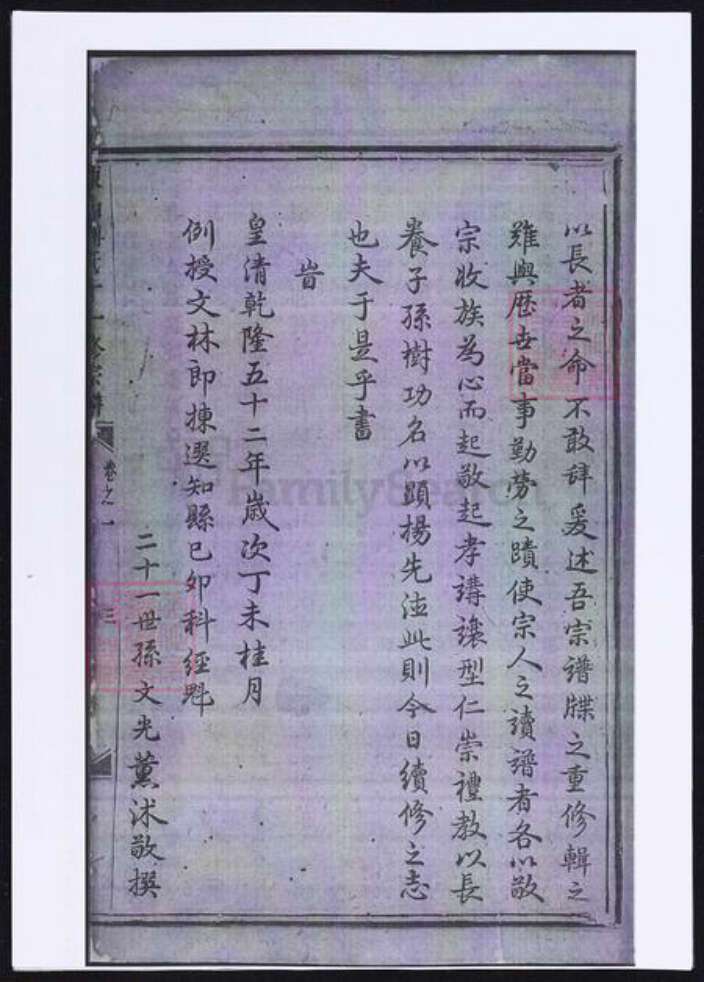 以長者之命不敢辞爰述吾宗譜牒之重修輯之
雖與歴世當事勤勞之蹟使宗人之讀譜者各以敬
宗收族為心而起敬起孝講讓型仁崇禮教以長
養子孫樹功名以顕揚先法此則今日續修之志
也夫于是乎書
旹
皇清乾隆五十二年歳次丁未桂月
例授文林郎揀選知縣己夘科經魁
二十一世孫文光薰沐敬撰
卷之一
三
FamilySearch